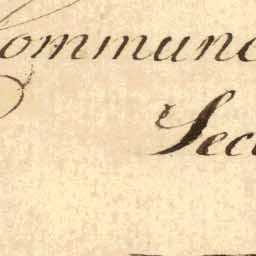 ommune
Sec